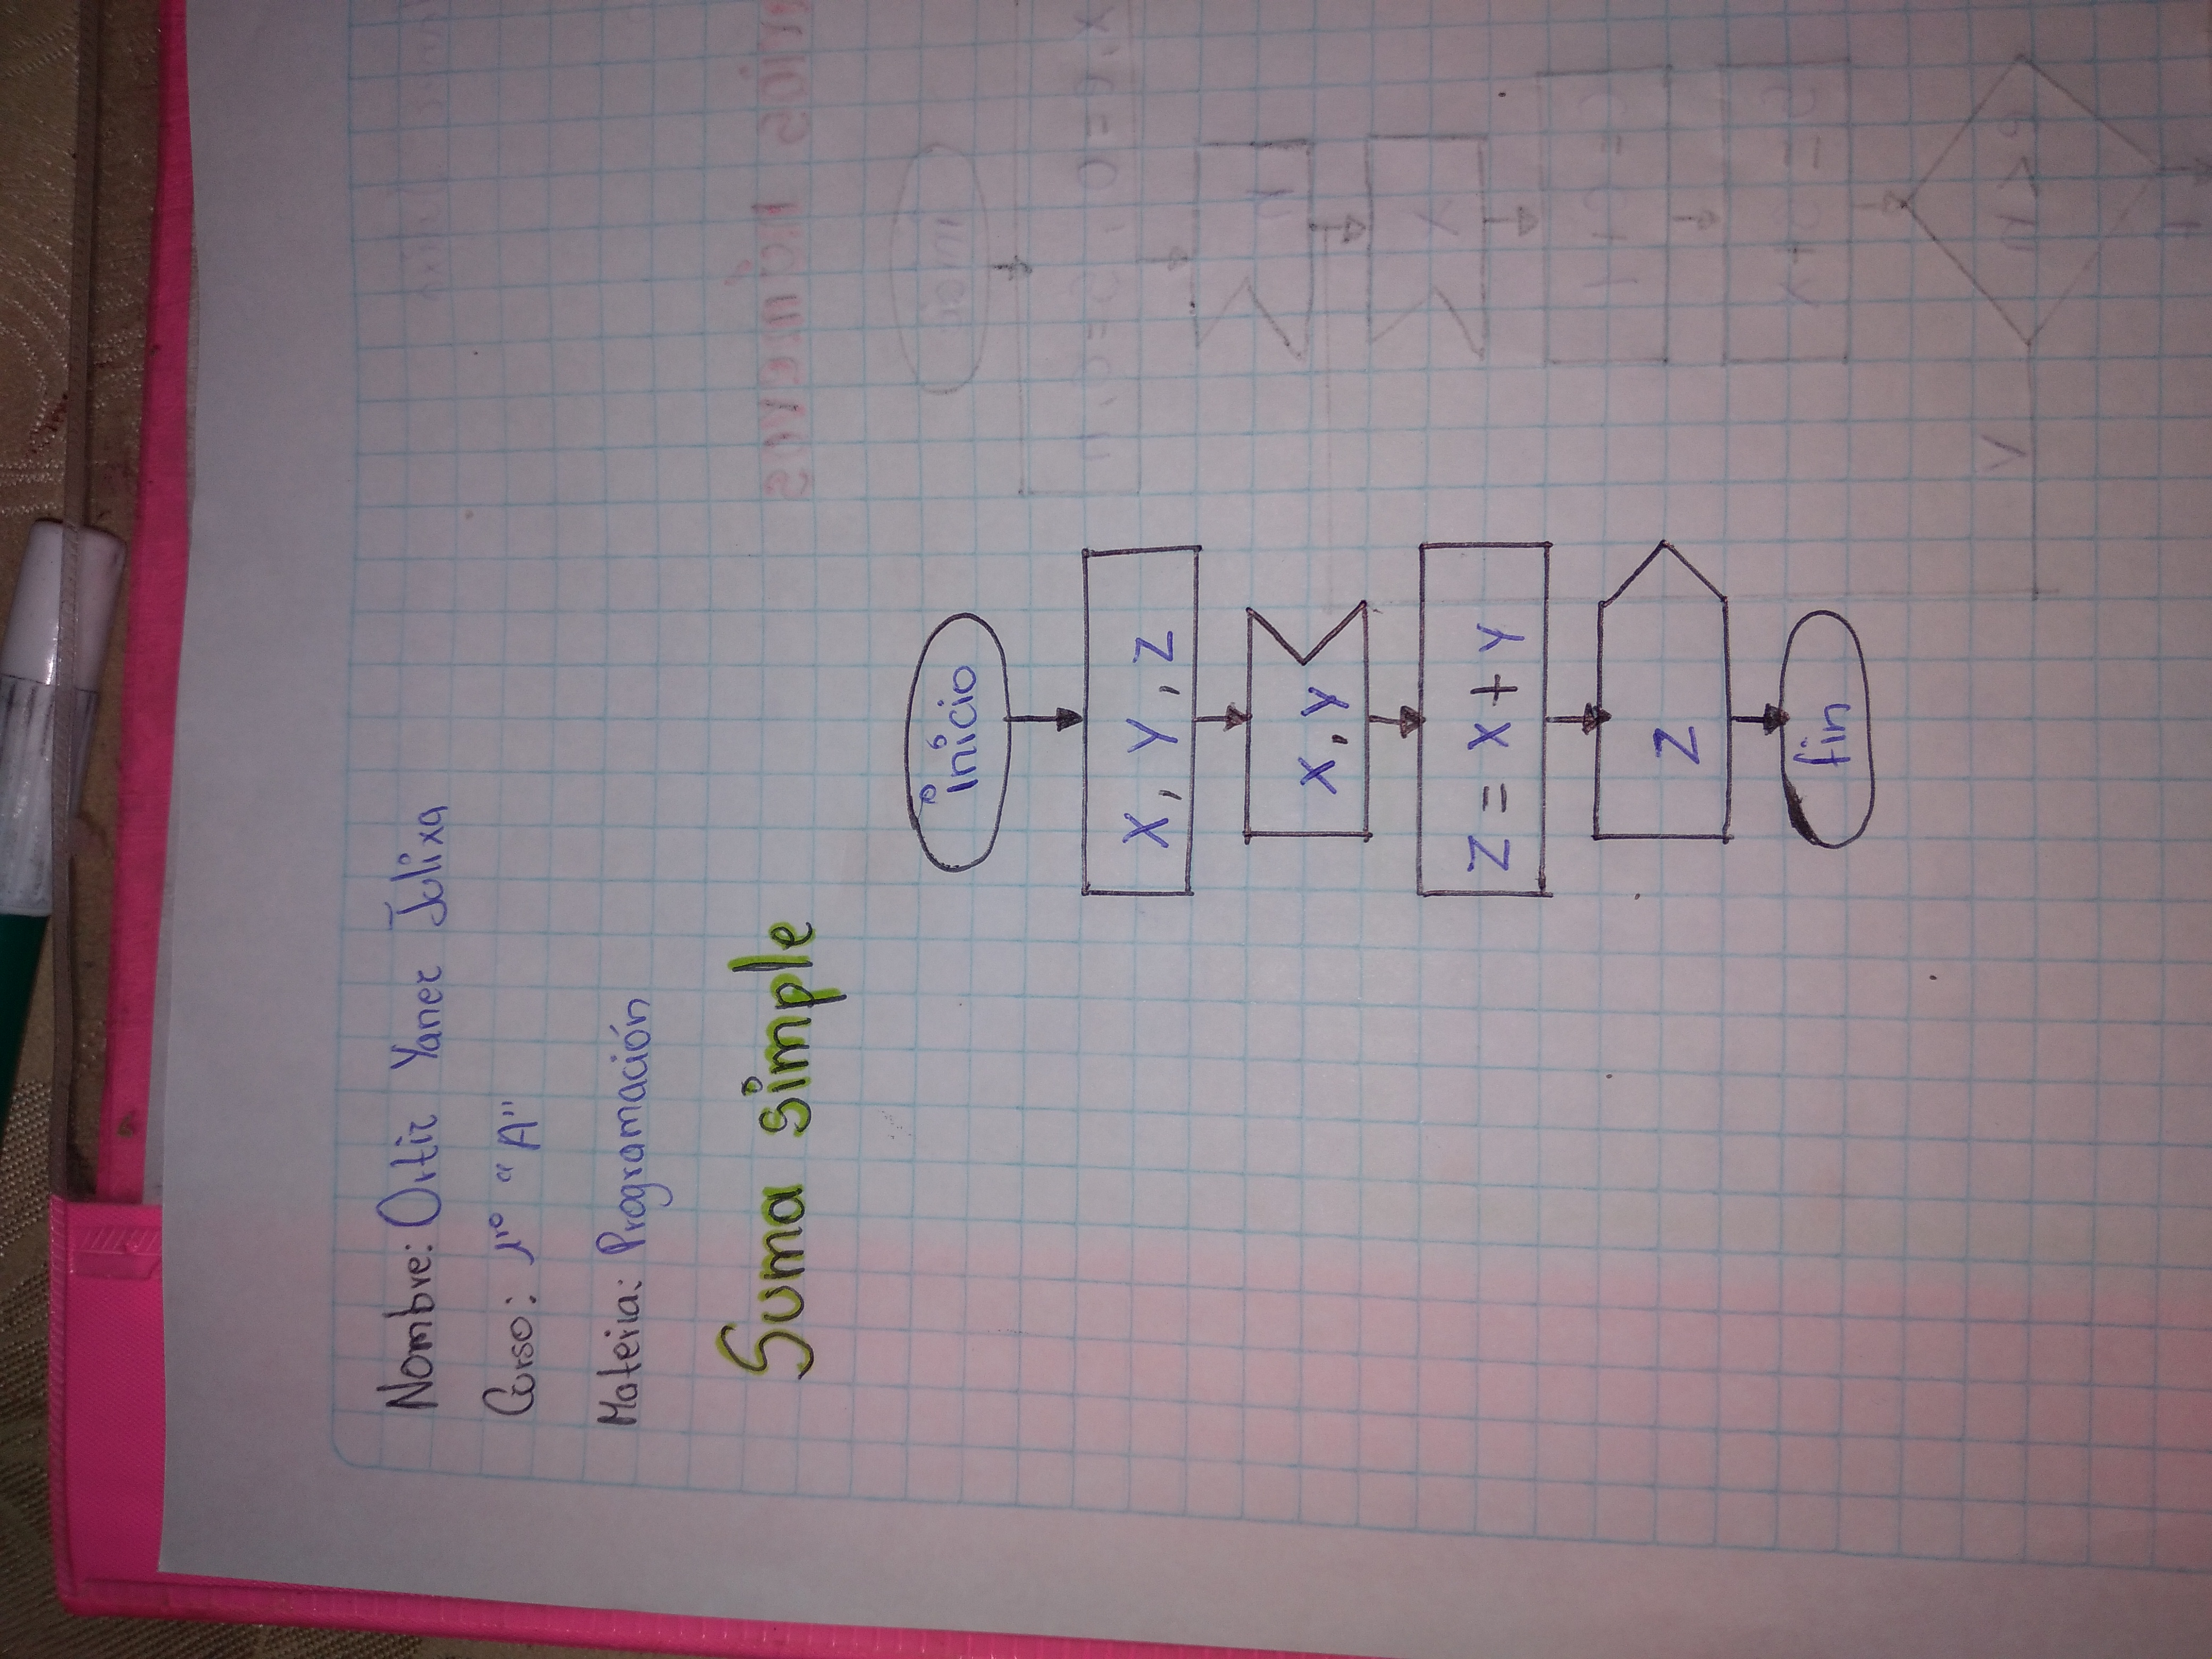 Nombre: Ortiz Yanez Julixa
Curso: 1ro "A"
Materia: Programación
Suma simple
inicio
X, Y, Z
X, Y
Z = X + Y
Z
fin